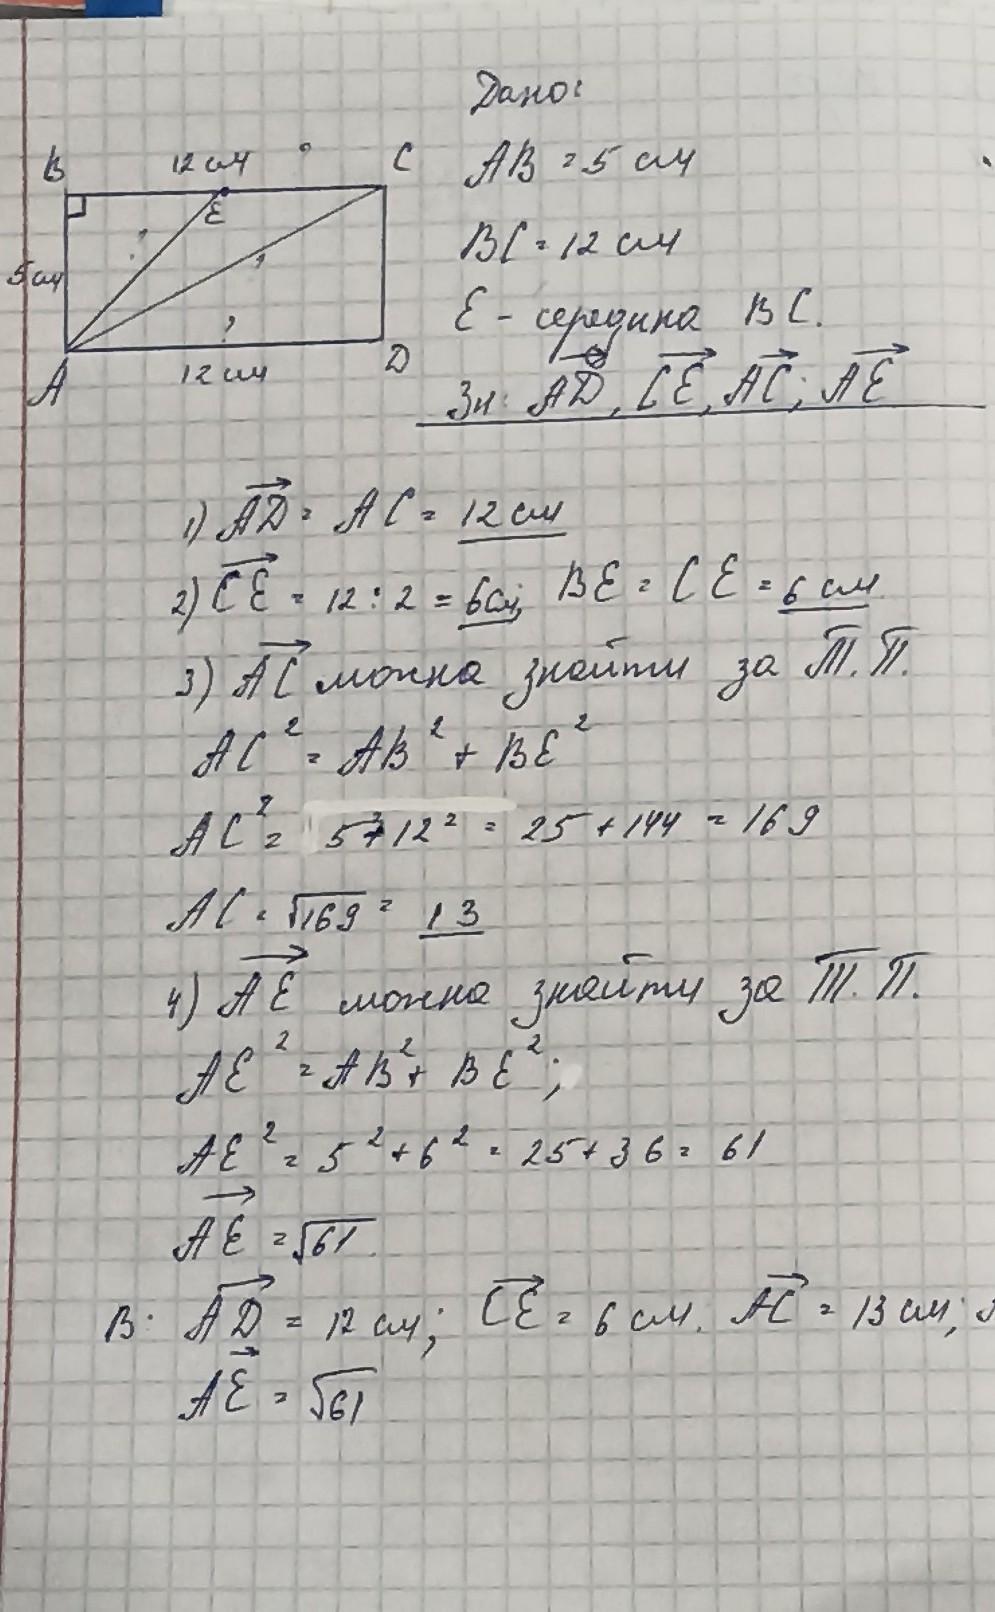 Дано:
B 12 см C
AB = 5 см
E
BC = 12 см
5 см
E - середина BC.
A 12 см D
Зн: AD, CE, AC; AE
1) AD = AC = 12 см
2) CE = 12 : 2 = 6см; BE = CE = 6 см
3) AC можна знайти за Т.П.
AC² = AB² + BE²
AC² = 5²+12² = 25 + 144 = 169
AC = √169 = 13
4) AE можна знайти за Т.П.
AE² = AB² + BE²;
AE² = 5² + 6² = 25 + 36 = 61
AE = √61
В: AD = 12 см; CE = 6 см. AC = 13 см;
AE = √61